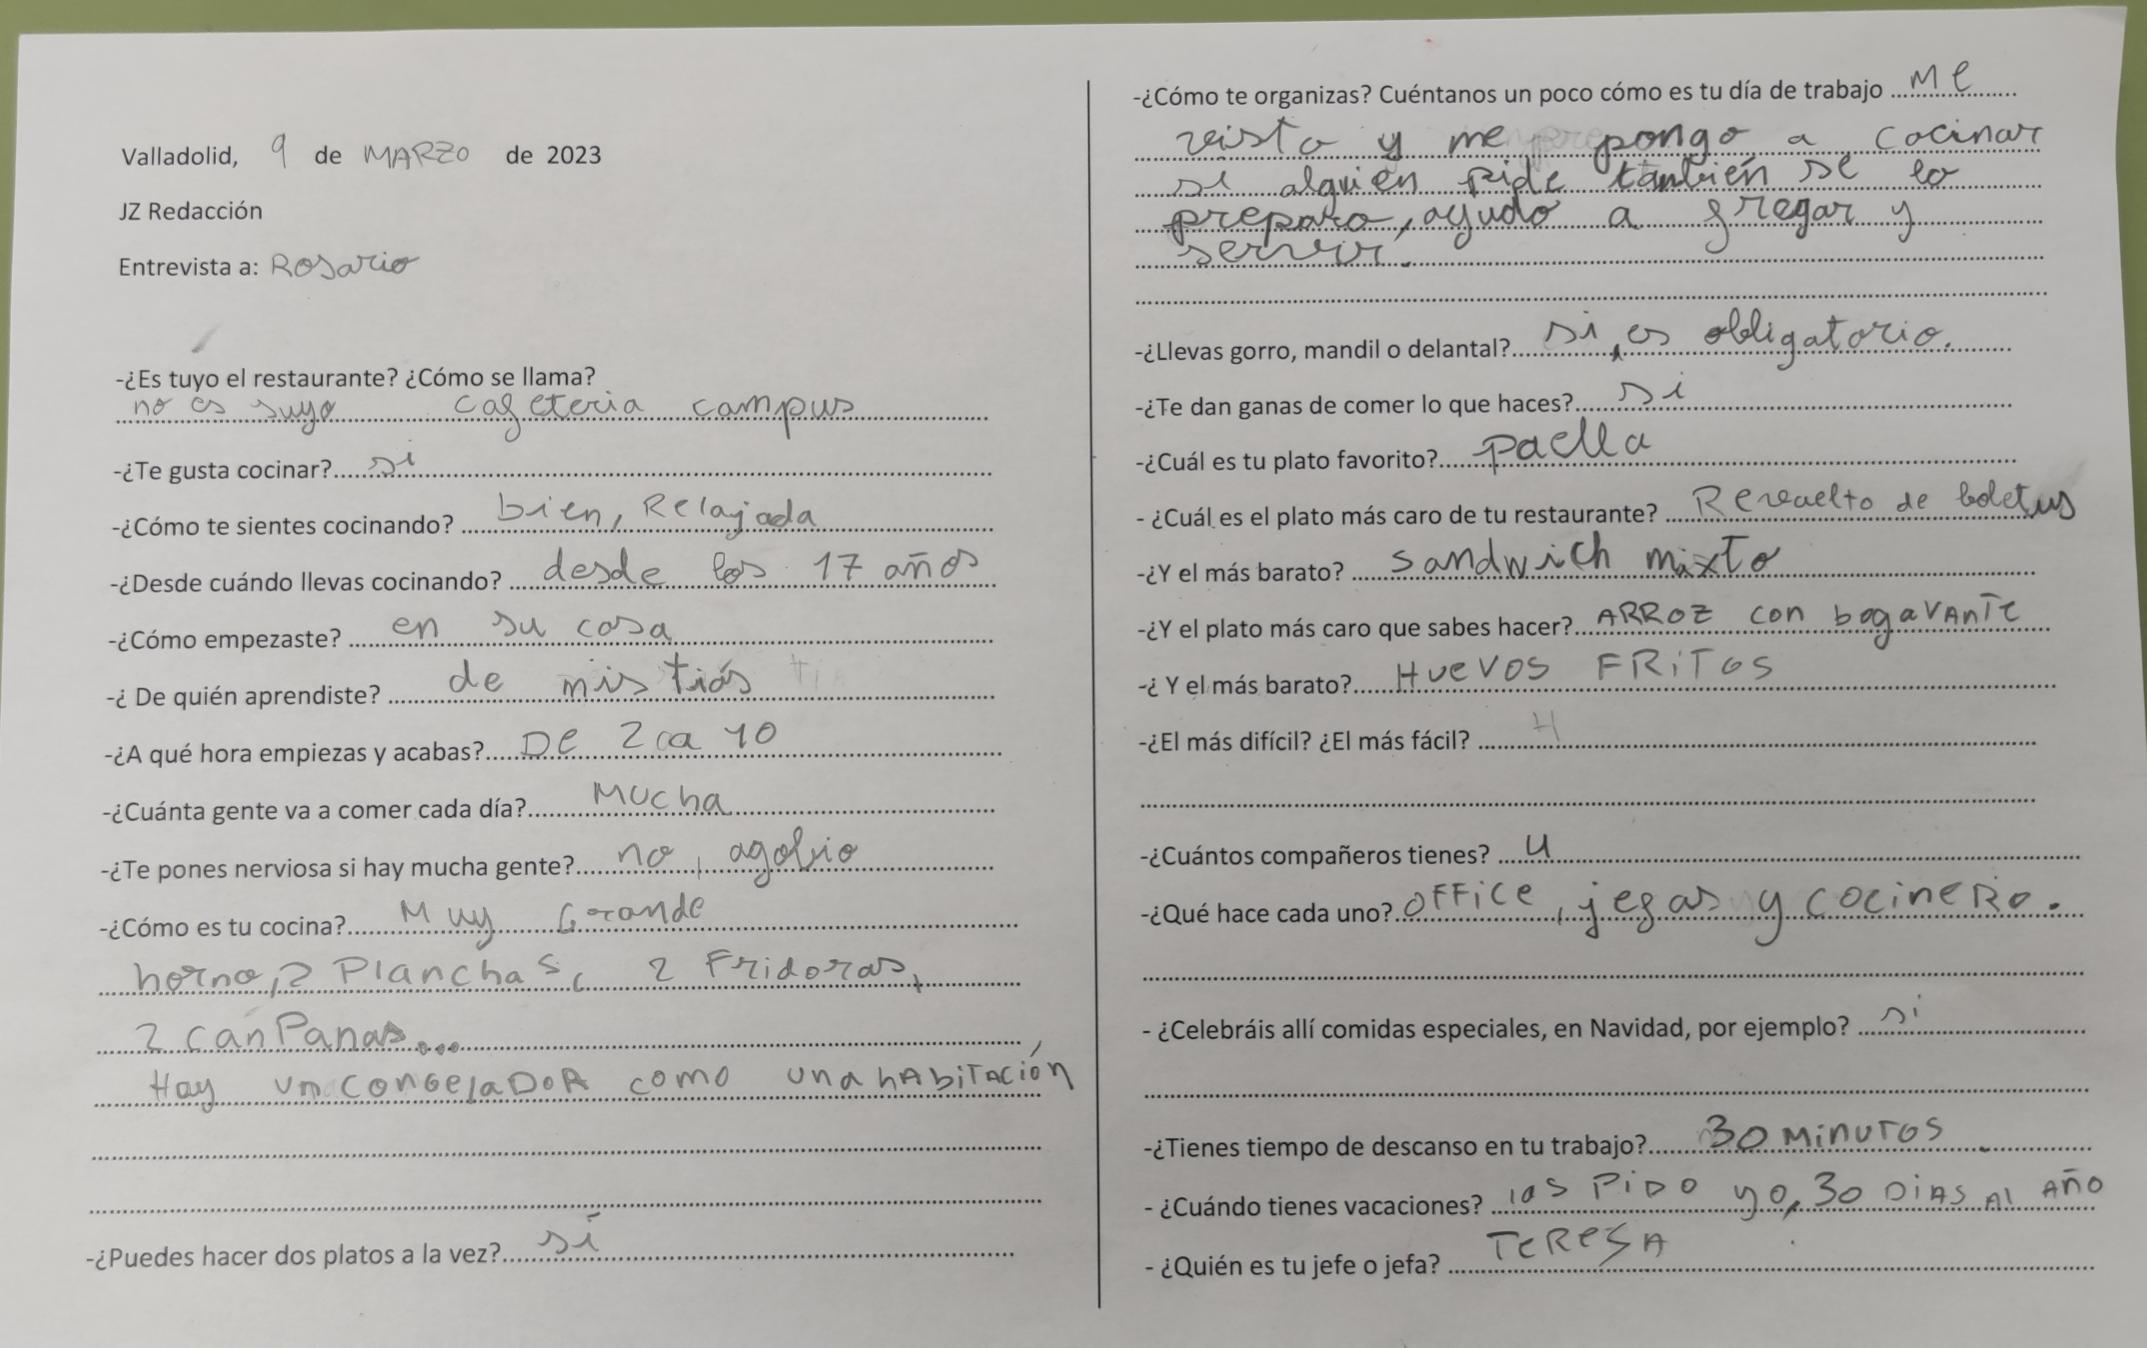 Valladolid, 9 de MARZO de 2023
JZ Redacción
Entrevista a: Rosario
-¿Es tuyo el restaurante? ¿Cómo se llama?
no es suyo cafeteria campus
-¿Te gusta cocinar? si
-¿Cómo te sientes cocinando? bien, Relajada
-¿Desde cuándo llevas cocinando? desde los 17 años
-¿Cómo empezaste? en su casa
-¿ De quién aprendiste? de mis tiás
-¿A qué hora empiezas y acabas? De 2 a 10
-¿Cuánta gente va a comer cada día? Mucha
-¿Te pones nerviosa si hay mucha gente? no, agobio
-¿Cómo es tu cocina? Muy Grande
horno, 2 Planchas, 2 Fridoras,
2 canPanas...
Hay un congelaDoR como una hAbiTACión
-¿Puedes hacer dos platos a la vez? sí
-¿Cómo te organizas? Cuéntanos un poco cómo es tu día de trabajo Me
visto y me pongo a cocinar
si alguien pide tanbién se lo
preparo, ayudo a fregar y
servir.
-¿Llevas gorro, mandil o delantal? si, es obligatorio.
-¿Te dan ganas de comer lo que haces? si
-¿Cuál es tu plato favorito? paella
- ¿Cuál es el plato más caro de tu restaurante? Revuelto de boletus
-¿Y el más barato? sandwich mixto
-¿Y el plato más caro que sabes hacer? ARROZ con bogaVAnTe
-¿ Y el más barato? HueVOS FRiTOS
-¿El más difícil? ¿El más fácil? H
-¿Cuántos compañeros tienes? 4
-¿Qué hace cada uno? OFFice, jefas y cocineRo.
- ¿Celebráis allí comidas especiales, en Navidad, por ejemplo? si
-¿Tienes tiempo de descanso en tu trabajo? 30 MinuTOS
- ¿Cuándo tienes vacaciones? las PiDO yo, 30 DiAS Al AÑO
- ¿Quién es tu jefe o jefa? TeReSA